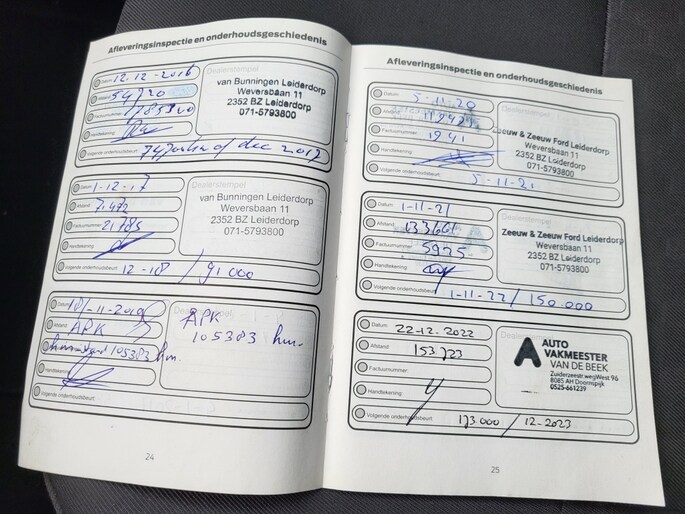 Afleveringsinspectie en onderhoudsgeschiedenis
Datum 12.12-2016
Afstand 54720
Factuurnummer
Handtekening
Volgende onderhoudsbeurt of dec 2017
Dealerstempel
van Bunningen Leiderdorp
Weversbaan 11
2352 BZ Leiderdorp
071-5793800
Datum 1-12-17
Afstand
Factuurnummer 21785
Handtekening
Volgende onderhoudsbeurt 12-18 / 91000
Dealerstempel
van Bunningen Leiderdorp
Weversbaan 11
2352 BZ Leiderdorp
071-5793800
Datum
Afstand APK
105383 km.
Handtekening
Volgende onderhoudsbeurt
Dealerstempel
APK
105383 km.
24
Afleveringsinspectie en onderhoudsgeschiedenis
Datum 5-11-20
Afstand
Factuurnummer 1941
Handtekening
Volgende onderhoudsbeurt 5-11-21
Zeeuw & Zeeuw Ford Leiderdorp
Weversbaan 11
2352 BZ Leiderdorp
071-5793800
Datum 1-11-21
Afstand 133601
Factuurnummer 5975
Handtekening
Volgende onderhoudsbeurt 1-11-22 / 150.000
Zeeuw & Zeeuw Ford Leiderdorp
Weversbaan 11
2352 BZ Leiderdorp
071-5793800
Datum 22-12-2022
Afstand 153.723
Factuurnummer
Handtekening
Volgende onderhoudsbeurt 173000 / 12-2023
AUTO
VAKMEESTER
VAN DE BEEK
Zuiderzeestr.wegWest 96
8085 AH Doornspijk
0525-661239
25